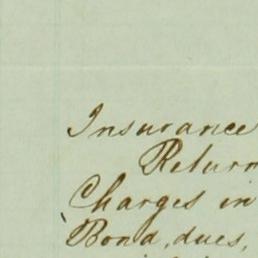 Insurance
Return
Charges in
Bond, dues,